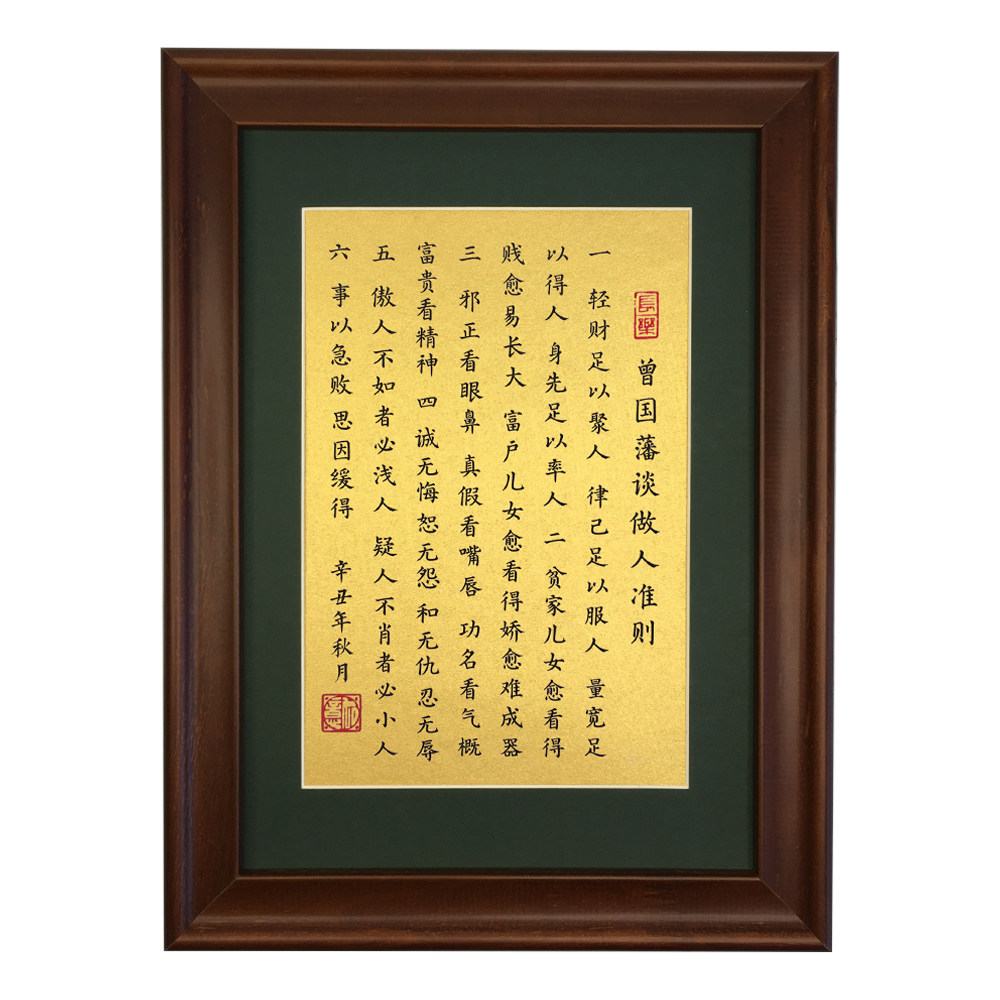 長樂
曾国藩谈做人准则
一 轻财足以聚人 律己足以服人 量宽足
以得人 身先足以率人 二 贫家儿女愈看得
贱愈易长大 富户儿女愈看得娇愈难成器
三 邪正看眼鼻 真假看嘴唇 功名看气概
富贵看精神 四 诚无悔恕无怨和无仇忍无辱
五 傲人不如者必浅人 疑人不肖者必小人
六 事以急败 思因缓得 辛丑年秋月